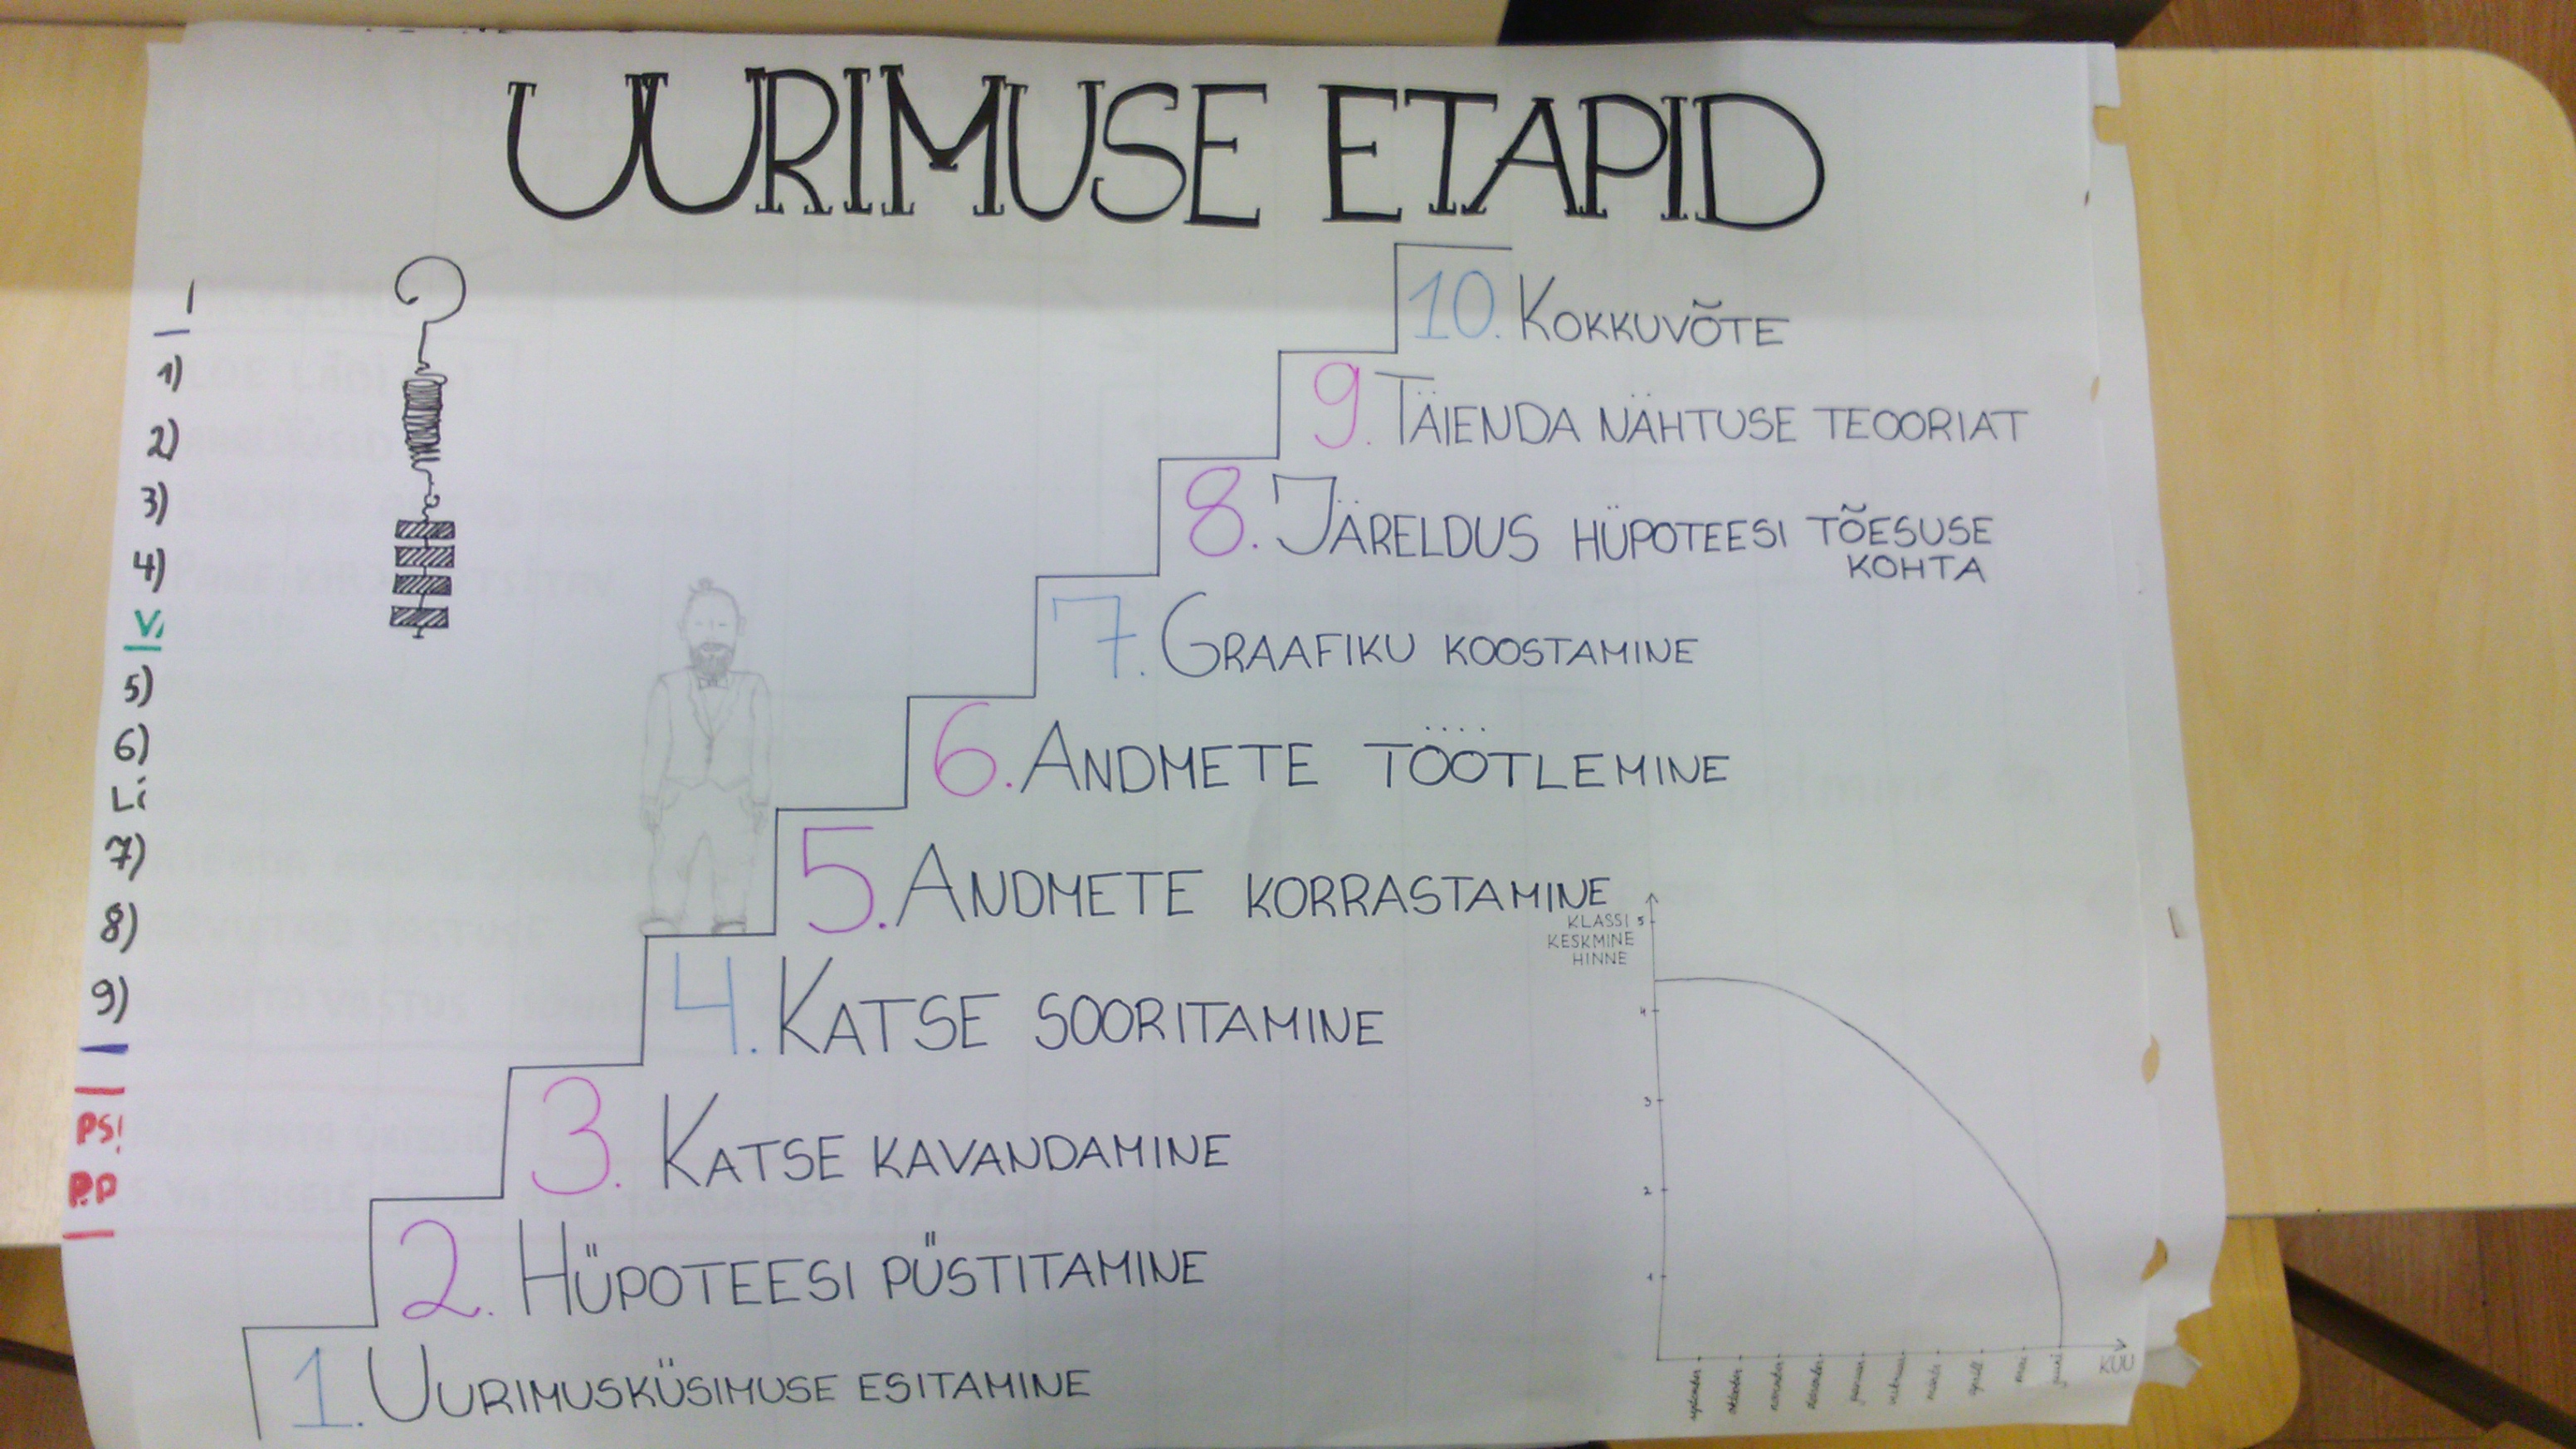 UURIMUSE ETAPID
10. KOKKUVÕTE
9. TÄIENDA NÄHTUSE TEOORIAT
8. JÄRELDUS HÜPOTEESI TÕESUSE
KOHTA
7. GRAAFIKU KOOSTAMINE
6. ANDMETE TÖÖTLEMINE
5. ANDMETE KORRASTAMINE
4. KATSE SOORITAMINE
3. KATSE KAVANDAMINE
2. HÜPOTEESI PÜSTITAMINE
1. UURIMUSKÜSIMUSE ESITAMINE
1)
2)
3)
4)
V
5)
6)
Li
7)
8)
9)
PS!
P.P
KLASSI
KESKMINE
HINNE
5
4
3
2
1
september
oktoober
november
detsember
jaanuar
veebruar
märts
aprill
mai
juuni
KUU